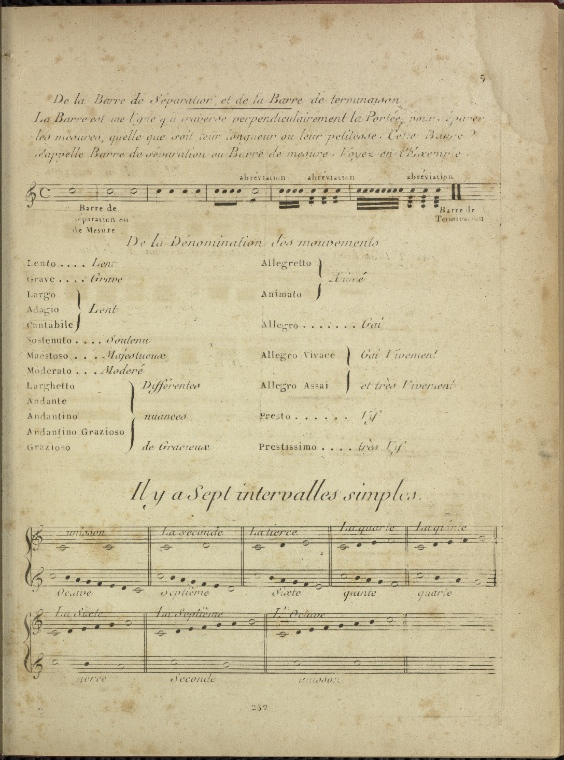 5
De la Barre de Séparation et de la Barre de terminaison
La Barre est une ligne qui traverse perpendiculairement la Portée, pour séparer
les mésures, quelle que soit leur longueur ou leur petitesse. Cette Barre
s'appelle Barre de séparation ou Barre de mesure. Voyez en l'Exemple.
abréviation abréviation abréviation
Barre de
séparation ou
de Mesure
Barre de
Terminaison
De la Dénomination des mouvements
Lento .... Lent
Grave .... Grave
Largo
Adagio Lent
Cantabile
Sostenuto .... Soutenu
Maestoso ... Majestueux
Moderato ... Moderé
Larghetto Différentes
Andante
Andantino nuances
Andantino Grazioso
Grazioso de Gracieux
Allegretto
Animato
Allegro ....... Gai
Allegro Vivace Gai Vivement
Allegro Assai et très Vivement
Presto ...... Vif
Prestissimo .... très Vif
Il y a Sept intervalles simples.
unisson La seconde La tierce La quarte La quinte
Octave Septième Sixte quinte quarte
La Sixte La Septième L'Octave
tierce Seconde unisson